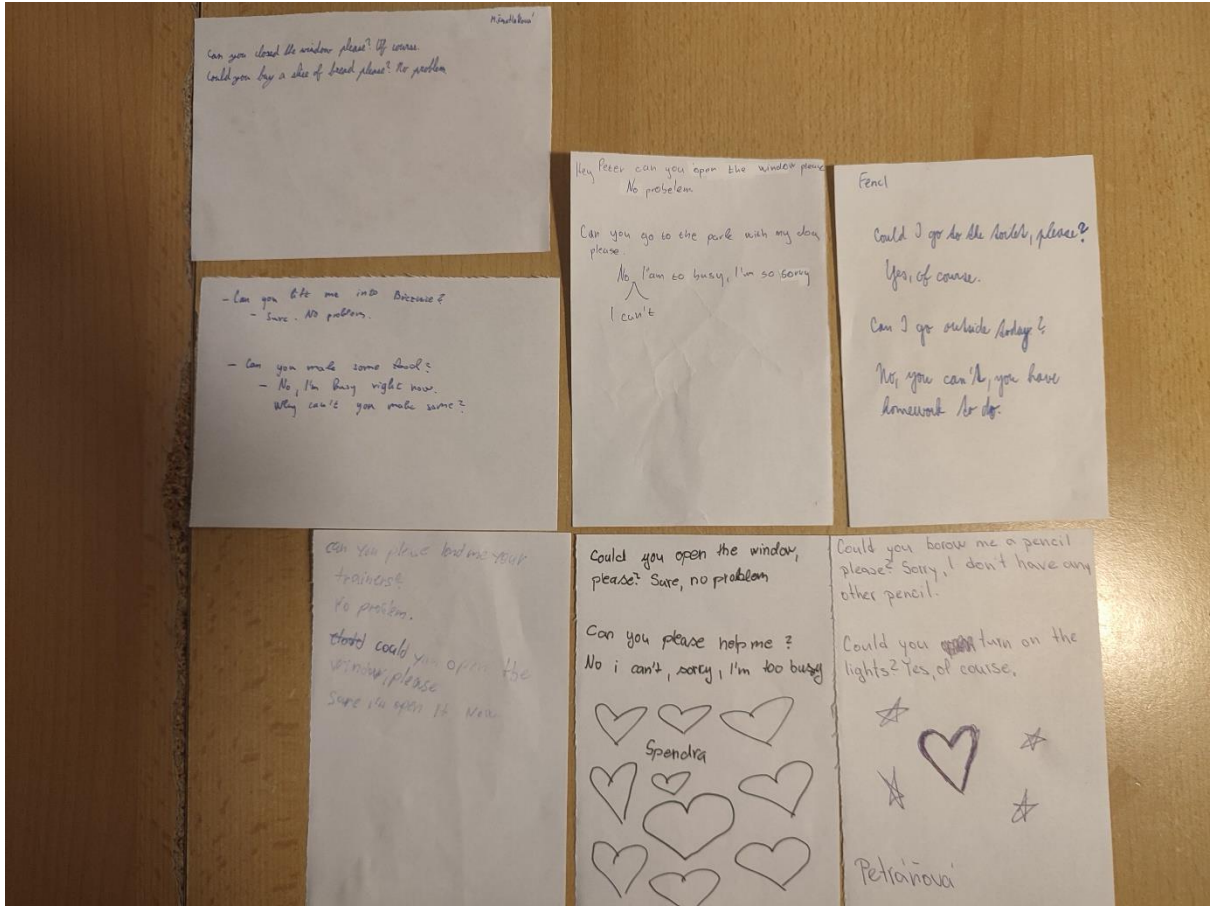 Can you closed the window please? Of course.
Could you buy a slice of bread please? No problem
- Can you lift me into
- Sure. No problem.
- Can you make some food?
- No, I'm busy right now.
Why can't you make same?
Hey Peter can you open the window please
No probelem
Can you go to the park with my dog
please.
No, I'am to busy, I'm so sorry
I can't
Fencl
Could I go to the toilet, please?
Yes, of course.
Can I go outside today?
No, you can't, you have
homework to do.
Can you please lend me your
trainers?
No problem.
could you open the
window, please
Sure open it now
Could you open the window,
please? Sure, no problem
Can you please help me?
No i can't, sorry, I'm too busy
Spendra
Could you borow me a pencil
please? Sorry, I don't have any
other pencil.
Could you turn on the
lights? Yes, of course.
Petráňová